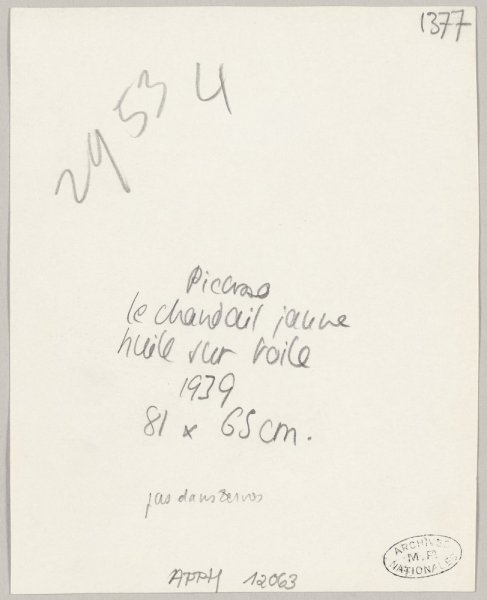 1377
29 53 U
Picasso
le chandail jaune
huile sur toile
1939
81 x 65 cm.
pas dans Zervos
APPH 12063
ARCHIVES
M.P.
NATIONALES